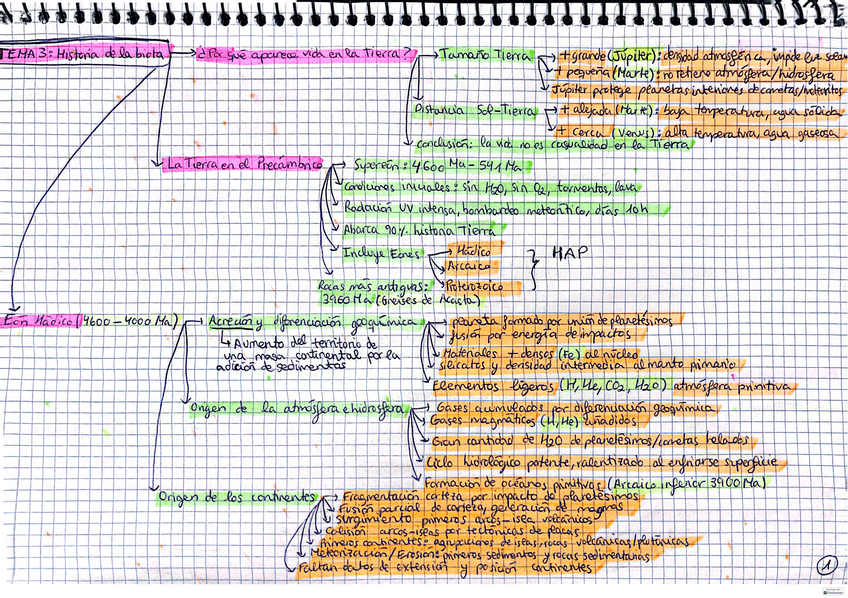 TEMA 3: Historia de la biota
¿Por qué aparece vida en la Tierra?
Tamaño Tierra
+ grande (Júpiter): densidad atmosférica, impide que sean
+ pequeña (Marte): no retiene atmósfera/hidrosfera
Júpiter protege planetas interiores de cometas/meteoritos
Distancia Sol-Tierra
+ alejada (Marte): baja temperatura, agua sólida
+ cerca (Venus): alta temperatura, agua gaseosa
Conclusión: la vida no es casualidad en la Tierra
La Tierra en el Precámbrico
Supereón: 4600 Ma - 541 Ma
Condiciones iniciales: sin H2O, sin O2, tormentas, lava
Radiación UV intensa, bombardeo meteorítico, días 10h
Abarca 90% historia Tierra
Incluye Eones
Hádico
Arcaico
Proterozoico
HAP
Rocas más antiguas:
3960 Ma (Gneises de Acasta)
Eón Hádico (4600 - 4000 Ma)
Acreción y diferenciación geoquímica
Aumento del territorio de
una masa continental por la
adición de sedimentos
planeta formado por unión de planetésimos
fusión por energía de impactos
Materiales + densos (Fe) al núcleo
silicatos y densidad intermedia al manto primario
Elementos ligeros (H, He, CO2, H2O) atmósfera primitiva
Origen de la atmósfera e hidrosfera
Gases acumulados por diferenciación geoquímica
Gases magmáticos (H, He) añadidos
Gran cantidad de H2O de planetésimos/cometas helados
Ciclo hidrológico potente, ralentizado al enfriarse superficie
Formación de océanos primitivos (Arcaico inferior 3900 Ma)
Origen de los continentes
Fragmentación corteza por impacto de planetésimos
Fusión parcial de corteza, generación de magmas
Surgimiento primeros arcos-islea volcánicos
Colisión arcos-islas por tectónica de placas
Primeros continentes: agrupaciones de islas, rocas volcánicas/plutónicas
Meteorización/Erosión: primeros sedimentos y rocas sedimentarias
Faltan datos de extensión y posición continentes
1